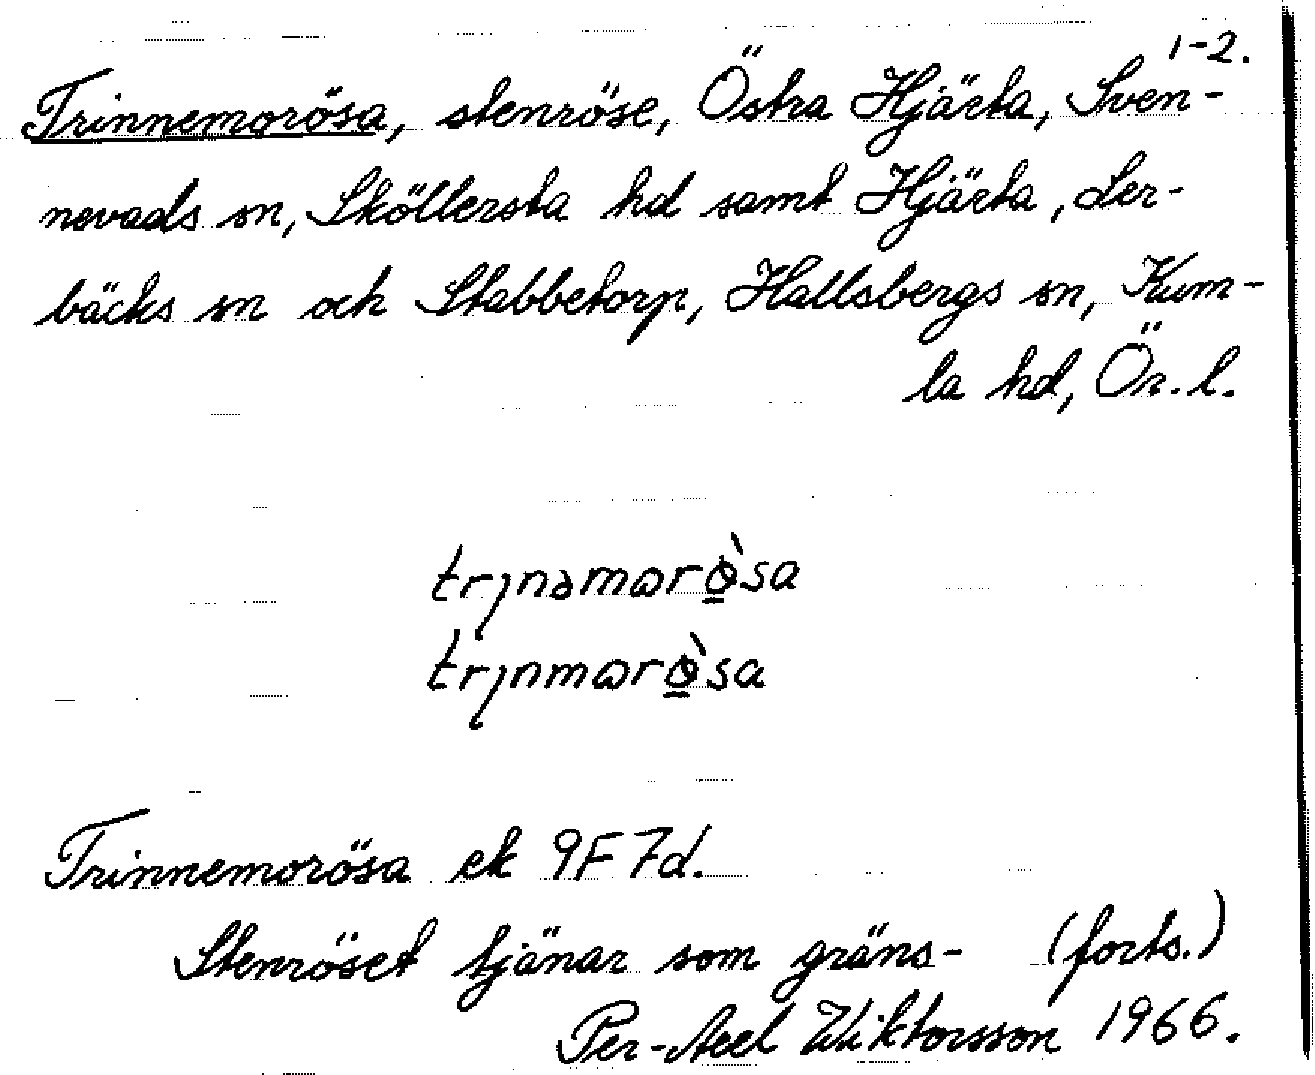 1-2.
Trinnemorösa, stenröse, Östra Hjärta, Sven-
nevads sn, Sköllersta hd samt Hjärta, Ler-
bäcks sn och Stabbetorp, Hallsbergs sn, Kum-
la hd, Ör. l.
trɩnəmωrö̀sa
trɩnmωrö̀sa
Trinnemorösa ek 9F 7d.
Stenröset tjänar som gräns- (forts.)
Per-Axel Wiktorsson 1966.